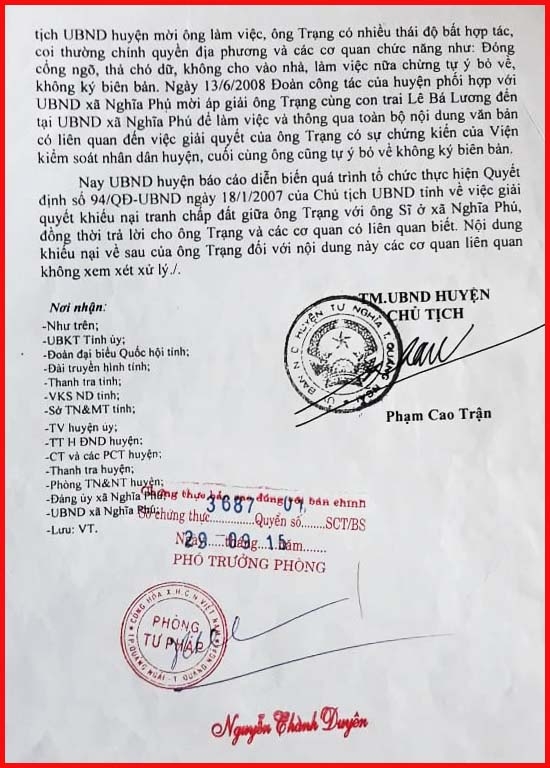 tịch UBND huyện mời ông làm việc, ông Trạng có nhiều thái độ bất hợp tác,
coi thường chính quyền địa phương và các cơ quan chức năng như: Đóng
cổng ngõ, thả chó dữ, không cho vào nhà, làm việc nữa chừng tự ý bỏ về,
không ký biên bản. Ngày 13/6/2008 Đoàn công tác của huyện phối hợp với
UBND xã Nghĩa Phú mời áp giải ông Trạng cùng con trai Lê Bá Lương đến
tại UBND xã Nghĩa Phú để làm việc và thông qua toàn bộ nội dung văn bản
có liên quan đến việc giải quyết của ông Trạng có sự chứng kiến của Viện
kiểm soát nhân dân huyện, cuối cùng ông cũng tự ý bỏ về không ký biên bản.
Nay UBND huyện báo cáo diễn biến quá trình tổ chức thực hiện Quyết
định số 94/QĐ-UBND ngày 18/1/2007 của Chủ tịch UBND tỉnh về việc giải
quyết khiếu nại tranh chấp đất giữa ông Trạng với ông Sĩ ở xã Nghĩa Phú,
đồng thời trả lời cho ông Trạng và các cơ quan có liên quan biết. Nội dung
khiếu nại về sau của ông Trạng đối với nội dung này các cơ quan liên quan
không xem xét xử lý./.
TM.UBND HUYỆN
CHỦ TỊCH
U Ỷ BAN N D HUYỆN TƯ NGHĨA T. QUẢNG NGÃI
Phạm Cao Trận
Nơi nhận:
-Như trên;
-UBKT Tỉnh ủy;
-Đoàn đại biểu Quốc hội tỉnh;
-Đài truyền hình tỉnh;
-Thanh tra tỉnh;
-VKS ND tỉnh;
-Sở TN&MT tỉnh;
-TV huyện ủy;
-TT H ĐND huyện;
-CT và các PCT huyện;
-Thanh tra huyện;
-Phòng TN&NT huyện;
-Đảng ủy xã Nghĩa Phú;
-UBND xã Nghĩa Phú;
-Lưu: VT.
Chứng thực bản sao đúng với bản chính
Số chứng thực 3687 Quyển số 01 SCT/BS
Ngày 29 tháng 09 năm 15
PHÓ TRƯỞNG PHÒNG
CỘNG HÒA X.H.C.N VIỆT NAM
PHÒNG
TƯ PHÁP
TP.QUẢNG NGÃI - T. QUẢNG NGÃI
Nguyễn Thành Duyên